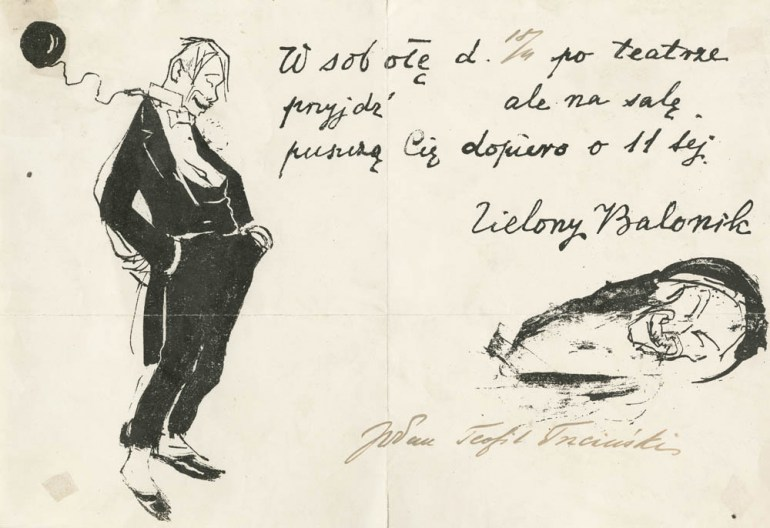 W sobotę d. 18/IV po teatrze
przyjdź ale na salę
puszczą Cię dopiero o 11 tej.
Zielony Balonik
JWPan Teofil Trzciński